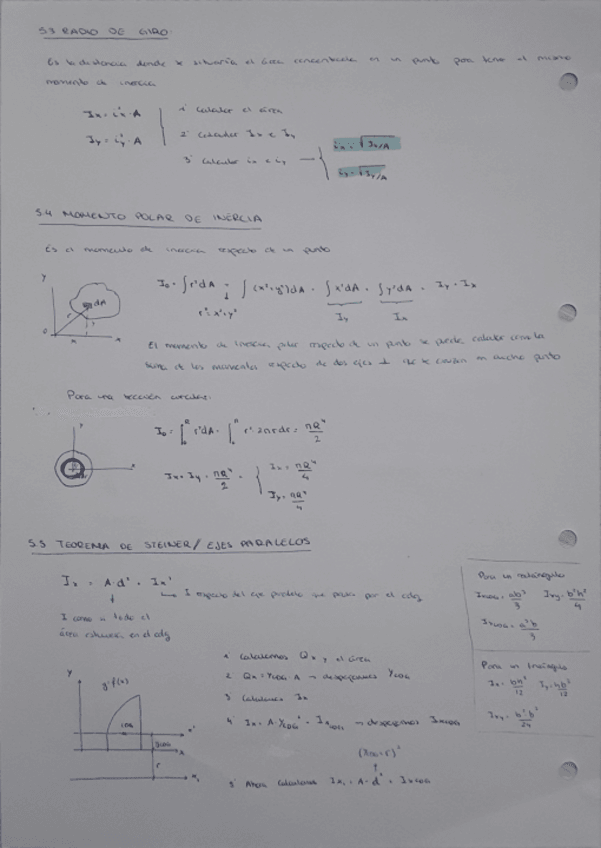 5.3 RADIO DE GIRO:
Es la distancia donde se situaría el área concentrada en un punto para tener el mismo
momento de inercia
Ix = ix² · A
Iy = iy² · A
1º Calcular el área
2º Calcular Ix e Iy
3º Calcular ix e iy →
ix = √Ix/A
iy = √Iy/A
5.4 MOMENTO POLAR DE INERCIA
Es el momento de inercia respecto de un punto
y
dA
r
y
o
x
x
Io = ∫r²dA = ∫(x²+y²)dA = ∫x²dA + ∫y²dA = Iy + Ix
r² = x²+y²
Iy
Ix
El momento de inercia polar respecto de un punto se puede calcular como la
suma de los momentos respecto de dos ejes ⊥ que se cruzan en dicho punto
Para una sección circular:
y
x
Io = ∫ r²dA = ∫ r² 2πrdr = πR⁴/2
Ix + Iy = πR⁴/2 =
Ix = πR⁴/4
Iy = πR⁴/4
5.5 TEOREMA DE STEINER / EJES PARALELOS
Ix = A·d² + Ix'
I respecto del eje paralelo que pasa por el cdg
I como si todo el
área estuviera en el cdg
Para un rectángulo
Ixy = b²h²/4
Para un triángulo
Ix = bh³/12
Iy = hb³/12
Ixy = b²h²/24
y
y=f(x)
CDG
x'
YCDG
x
r
x₁
1º Calculamos Qx y el área
2º Qx = YCDG · A → despejamos YCDG
3º Calculamos Ix
4º Ix = A·YCDG² + IxCDG → despejamos IxCDG
5º Ahora calculamos Ix₁ = A·d² + IxCDG